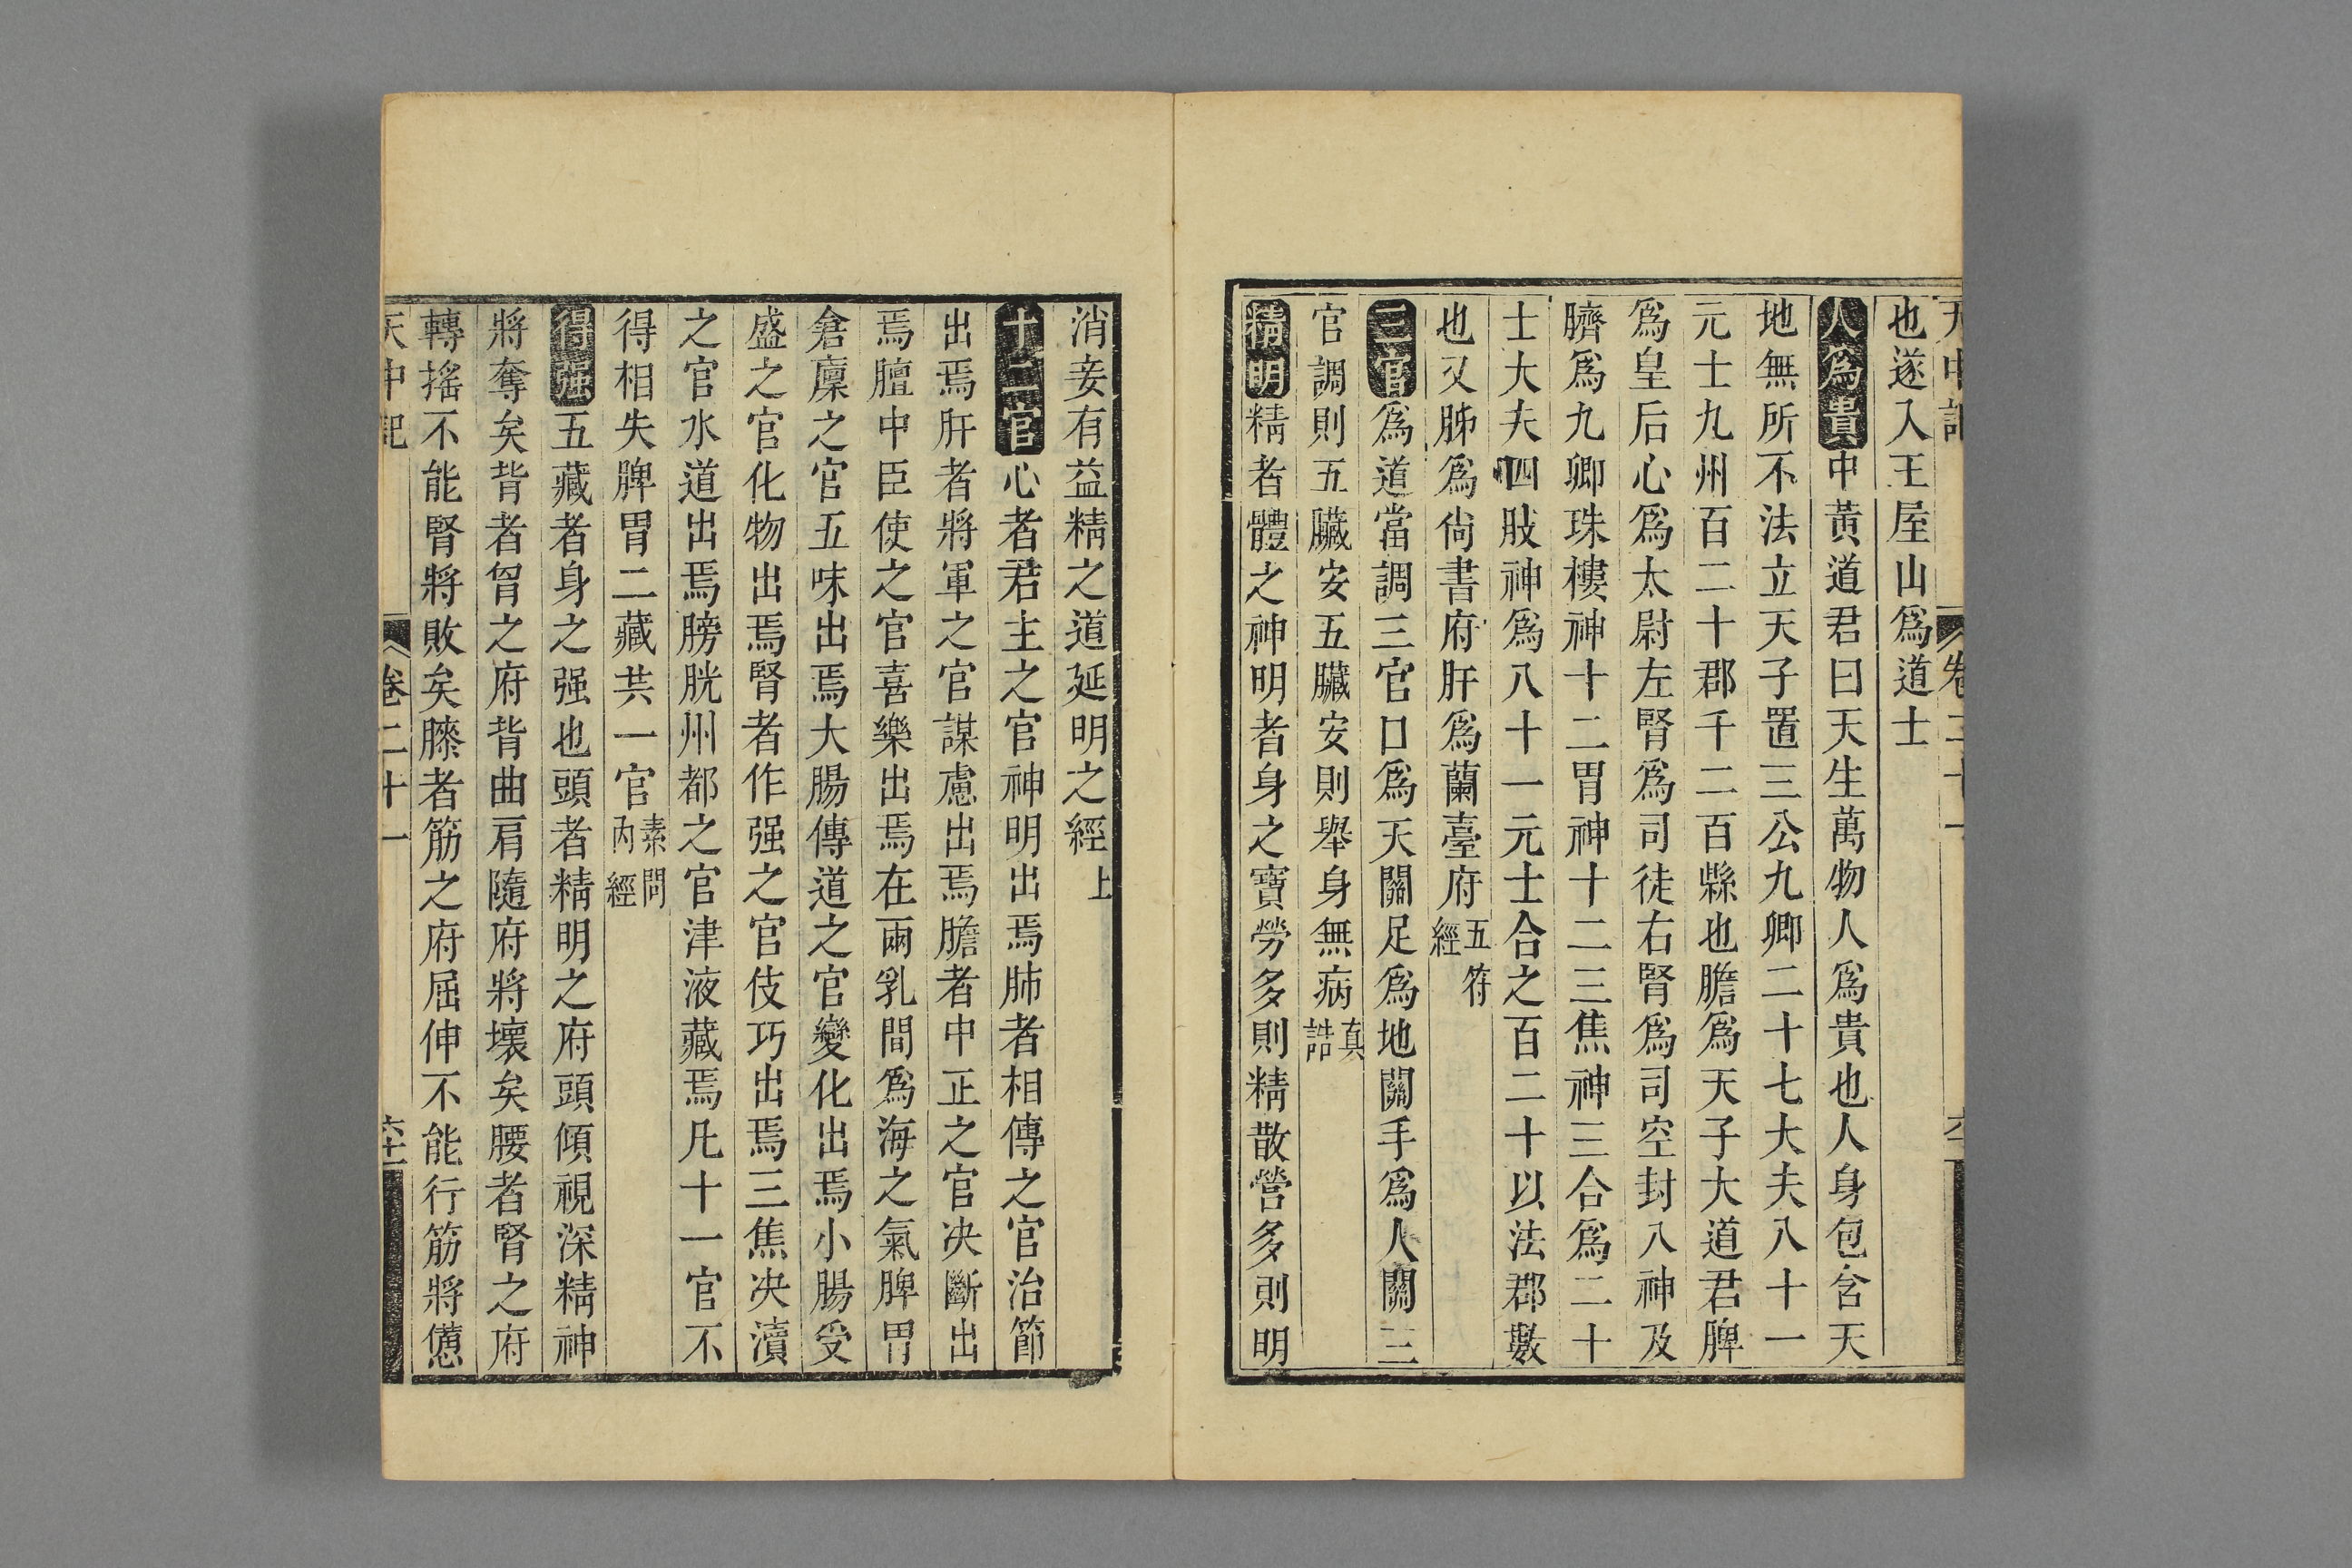 天中記 卷二十一
也遂入王屋山爲道士
人爲貴中黃道君曰天生萬物人爲貴也人身包含天
地無所不法立天子置三公九卿二十七大夫八十一
元士九州百二十郡千二百縣也膽爲天子大道君脾
爲皇后心爲太尉左腎爲司徒右腎爲司空封八神及
臍爲九卿珠樓神十二胃神十二三焦神三合爲二十
士大夫四肢神爲八十一元士合之百二十以法郡數
也又肺爲尙書府肝爲蘭臺府五符經
三官爲道當調三官口爲天關足爲地關手爲人關三
官調則五臟安五臟安則舉身無病真誥
精明精者體之神明者身之寶勞多則精散營多則明
消妾有益精之道延明之經上
十二官心者君主之官神明出焉肺者相傳之官治節
出焉肝者將軍之官謀慮出焉膽者中正之官决斷出
焉膻中臣使之官喜樂出焉在兩乳間爲海之氣脾胃
倉廩之官五味出焉大腸傳道之官變化出焉小腸受
盛之官化物出焉腎者作强之官伎巧出焉三焦决瀆
之官水道出焉膀胱州都之官津液藏焉凡十一官不
得相失脾胃二藏共一官素問內經
得强五藏者身之强也頭者精明之府頭傾視深精神
將奪矣背者胷之府背曲肩隨府將壞矣腰者腎之府
轉搖不能腎將敗矣膝者筋之府屈伸不能行筋將憊
天中記 卷二十一